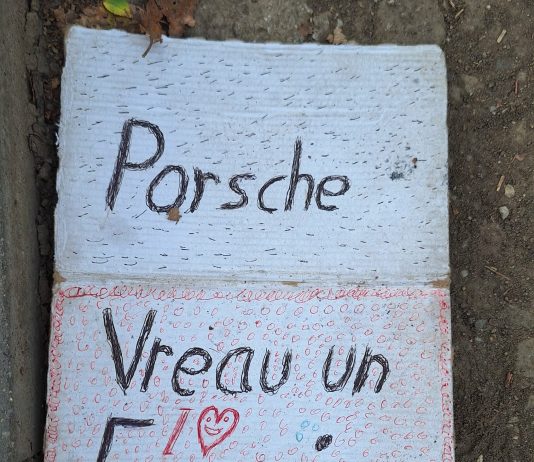 Porsche
Vreau un
I ♥